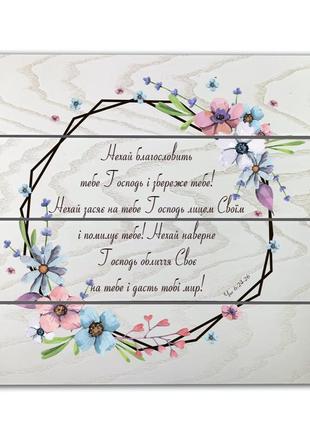 Нехай благословить
тебе Господь і збереже тебе!
Нехай засяє на тебе Господь лицем Своїм
і помилує тебе! Нехай наверне
Господь обличчя Своє
на тебе і дасть тобі мир!
6:24-26